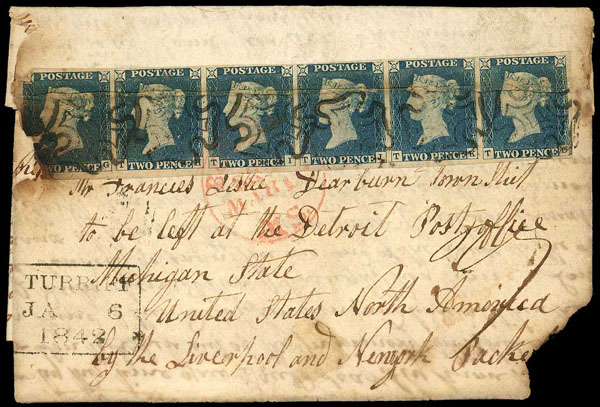 POSTAGE POSTAGE POSTAGE POSTAGE POSTAGE POSTAGE
TWO PENCE TWO PENCE TWO PENCE TWO PENCE TWO PENCE TWO PENCE
T G T H T I T T K T
Mr Frances Leslie Dearburn Township
to be left at the Detroit Post office
Michigan State
United States North America
by the Liverpool and Newyork Packet
TURR FF
JA 6
1842